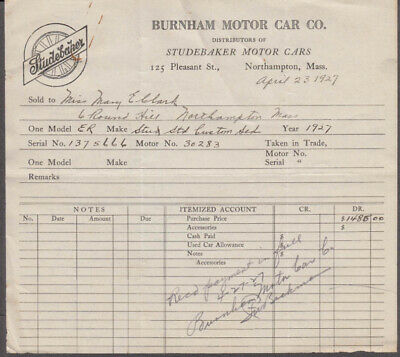 Studebaker
BURNHAM MOTOR CAR CO.
DISTRIBUTORS OF
STUDEBAKER MOTOR CARS
125 Pleasant St., Northampton, Mass.
April 23 1927
Sold to Miss Mary E. Clark
6 Round Hill Northampton Mass
One Model ER Make Stud Std Custom Sed Year 1927
Serial No. 1375666 Motor No. 30283 Taken in Trade,
One Model Make Motor No.
Serial "
Remarks
NOTES ITEMIZED ACCOUNT CR. DR.
No. Date Amount Due Purchase Price $1485.00
Accessories
Cash Paid $
Used Car Allowance $
Notes $
Accessories
Recd payment in full
4-27-27
Burnham Motor Car Co
Beekman